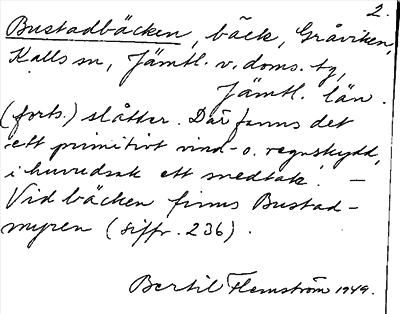 2.
Bustadbäcken, bäck, Gråviken,
Kalls sn, Jämtl. v. doms. tg,
Jämtl. län.
(forts.) slåtter. Där fanns det
ett primitivt vind- o. regnskydd,
i huvudsak ett snedtak. —
Vid bäcken finns Bustad-
myren (siffr. 236).
Bertil Flemström 1949.